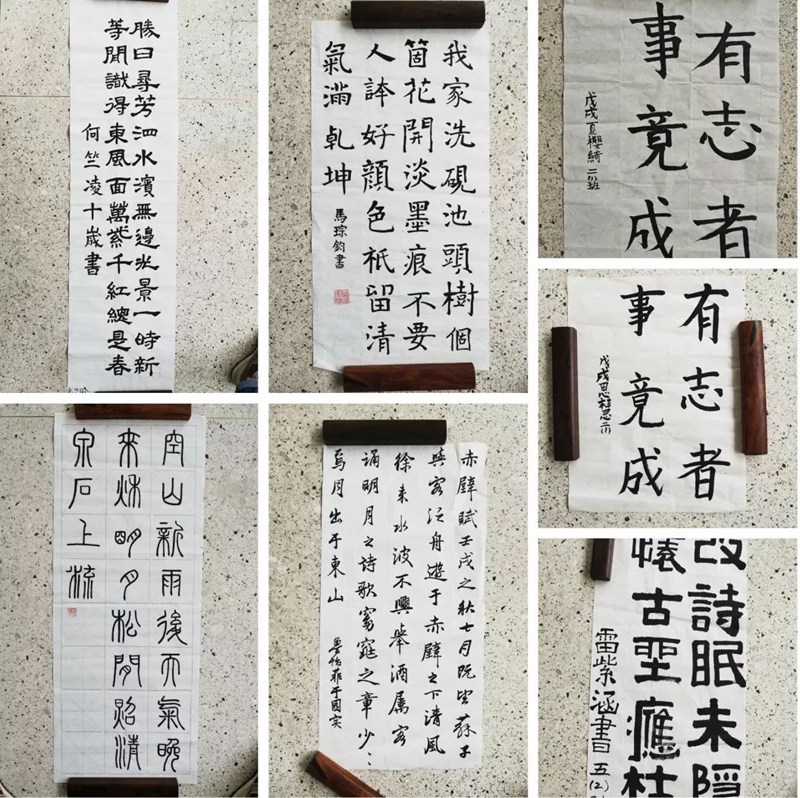 勝日尋芳泗水濱無邊光景一時新
等閒識得東風面萬紫千紅總是春
何竺凌十歲書
我家洗硯池頭樹個
箇花開淡墨痕不要
人誇好顏色祇留清
氣滿乾坤
馬琮鈞書
有志者
事竟成
戊戌夏櫻綺二班
有志者
事竟成
戊戌思
空山新雨後天氣晚
來秌明月松間照清
泉石上流
赤壁賦壬戌之秋七月既望蘇子
與客泛舟遊于赤壁之下清風
徐來水波不興舉酒属客
誦明月之詩歌窈窕之章少
焉月出于東山
改詩眠未隱
懷古聖應杜
雷紫涵書五(2)